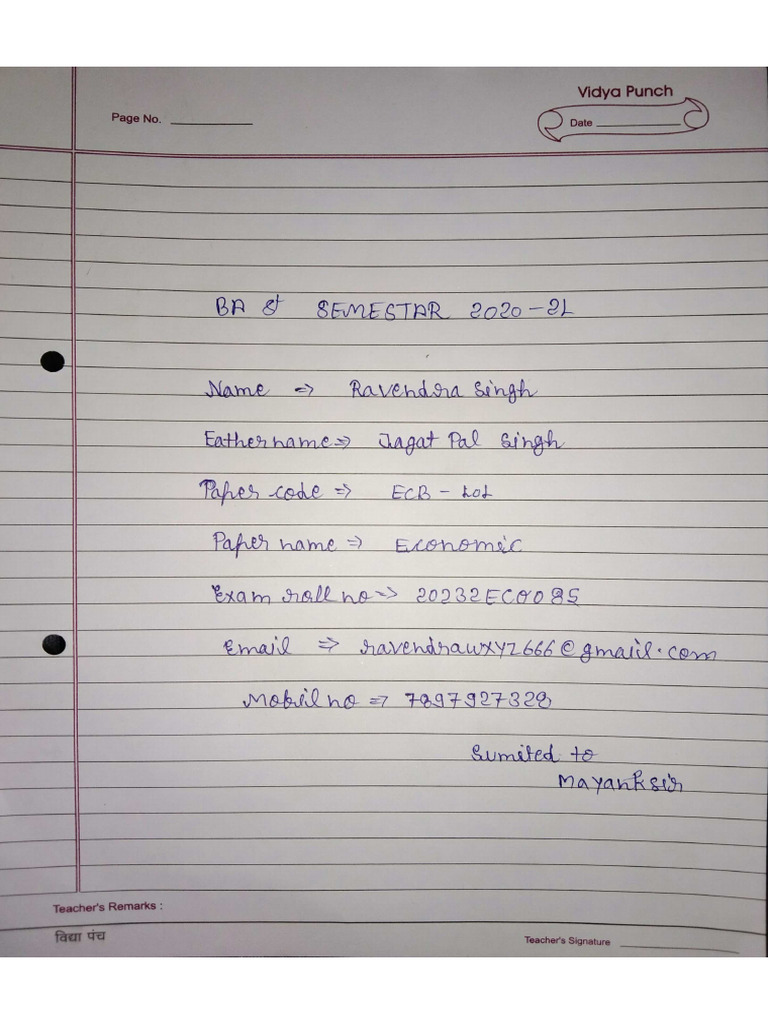 Vidya Punch
Page No.
Date
BA St SEMESTAR 2020-21
Name => Ravendra Singh
Eather name => Jagat Pal Singh
Paper code => ECB - 101
Paper name => Economic
Exam roll no => 20232ECO085
Email => ravendrawxyz666@gmail.com
Mobil no => 7897927328
Sumited to
Mayank sir
Teacher's Remarks :
विद्या पंच
Teacher's Signature